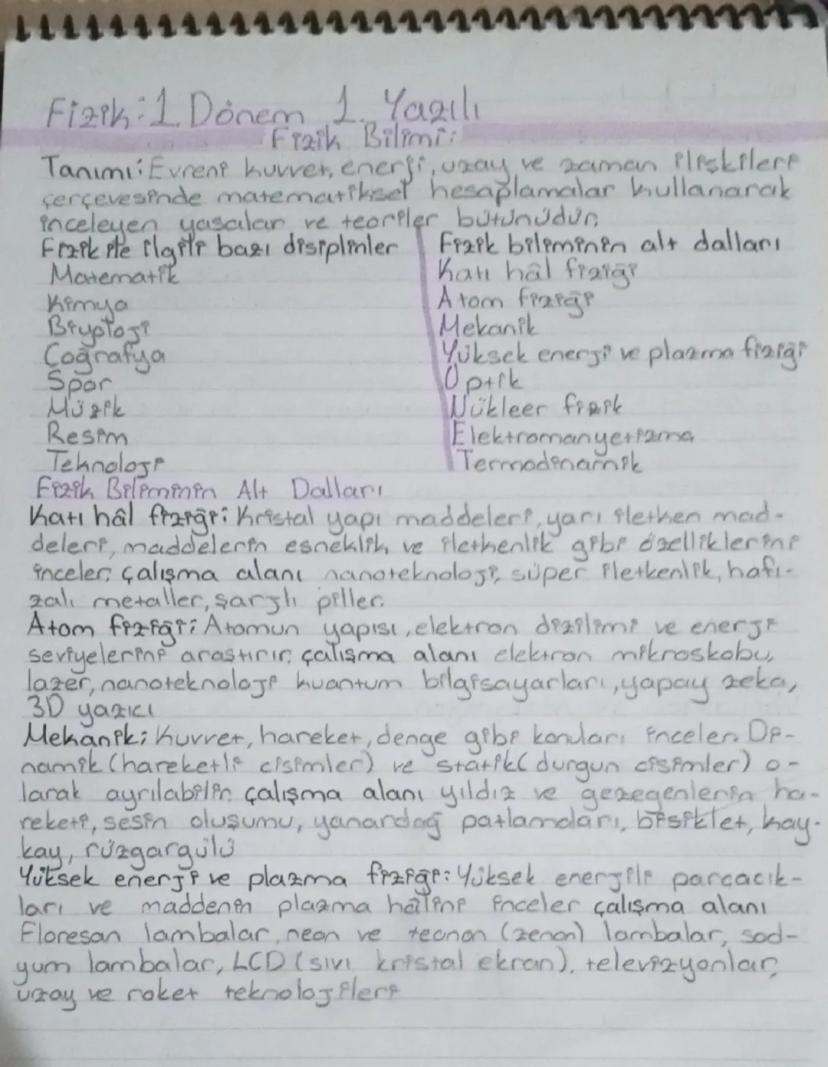 Fizik: 1. Dönem 1. Yazılı
Fizik Bilimi:
Tanımı: Evreni kuvvet, enerji, uzay ve zaman ilişkileri
çerçevesinde matematiksel hesaplamalar kullanarak
inceleyen yasalar ve teoriler bütünüdür.
Fizik ile ilgili bazı disiplinler
Matematik
Kimya
Biyoloji
Coğrafya
Spor
Müzik
Resim
Teknoloji
Fizik biliminin alt dalları
Katı hâl fiziği
Atom fiziği
Mekanik
Yüksek enerji ve plazma fiziği
Optik
Nükleer fizik
Elektromanyetizma
Termodinamik
Fizik Biliminin Alt Dalları
Katı hâl fiziği: Kristal yapı maddeleri, yarı iletken mad-
deleri, maddelerin esneklik ve iletkenlik gibi özelliklerini
inceler. çalışma alanı nanoteknoloji, süper iletkenlik, hafı-
zalı metaller, şarjlı piller.
Atom fiziği: Atomun yapısı, elektron dizilimi ve enerji
seviyelerini araştırır. çalışma alanı elektron mikroskobu,
lazer, nanoteknoloji kuantum bilgisayarları, yapay zeka,
3D yazıcı
Mekanik: Kuvvet, hareket, denge gibi konuları inceler. Di-
namik (hareketli cisimler) ve statik (durgun cisimler) o-
larak ayrılabilir. çalışma alanı yıldız ve gezegenlerin ha-
reketi, sesin oluşumu, yanardağ patlamaları, bisiklet, kay-
kay, rüzgargülü
Yüksek enerji ve plazma fiziği: Yüksek enerjili parcacık-
ları ve maddenin plazma hâlini inceler çalışma alanı
Floresan lambalar, neon ve tecnon (zenon) lambalar, sod-
yum lambalar, LCD (sıvı kristal ekran), televizyonlar,
uzay ve roket teknolojileri